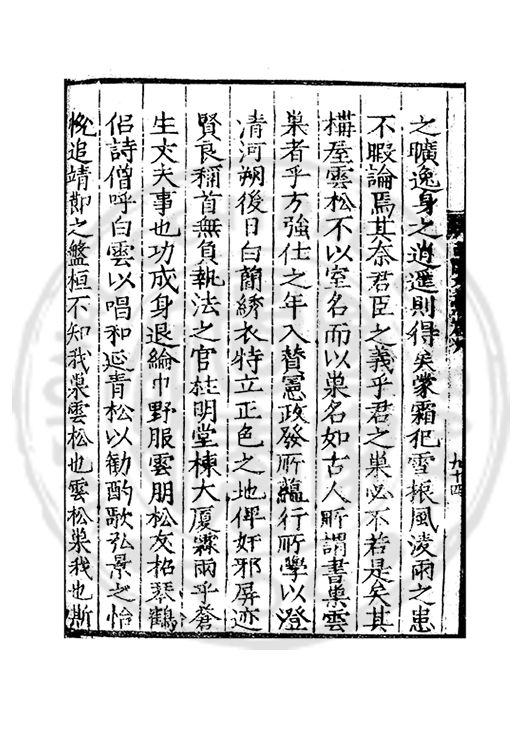 之曠逸身之逍遥則得矣蒙霜犯雪振風凌雨之患
不暇論焉其奈君臣之義乎君之巢必不若是矣其
構屋雲松不以室名而以巢名如古人所謂書巢雲
巢者乎方強仕之年入賛憲政發所蘊行所學以澄
清河朔後日白蕑綉衣特立正色之地俾奸邪屏迹
賢良稱首無負執法之官柱明堂棟大厦霖雨乎蒼
生丈夫事也功成身退綸巾野服雲朋松友招琴鶴
侣詩僧呼白雲以唱和延青松以勸酌歌弘景之怡
恱追靖節之盤桓不知我巢雲松也雲松巢我也斯
九十四